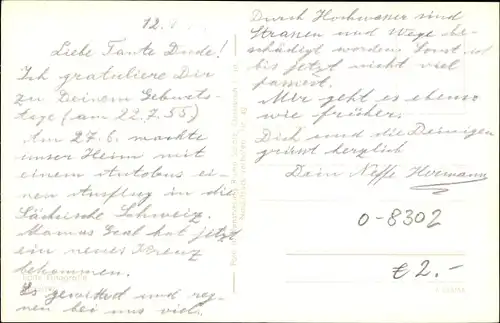 12.
Liebe Tante Dude!
Ich gratuliere Dir
zu Deinem Geburts-
tage (am 22.7.55)
Am 27.6. machte
unser Heim mit
einem Autobus ei-
nen Ausflug in die
Sächsische Schweiz.
Mamas Grab hat jetzt
ein neues Kreuz
bekommen.
Es gewittert und reg-
nen bei uns viel.
Durch Hochwasser sind
Strassen und Wege be-
schädigt worden. Sonst ist
bis jetzt nicht viel
passiert.
Mir geht es ebenso
wie früher.
Dich und die Deinigen
grüsst herzlich
Dein Neffe Hermann
0-8302
€ 2.-